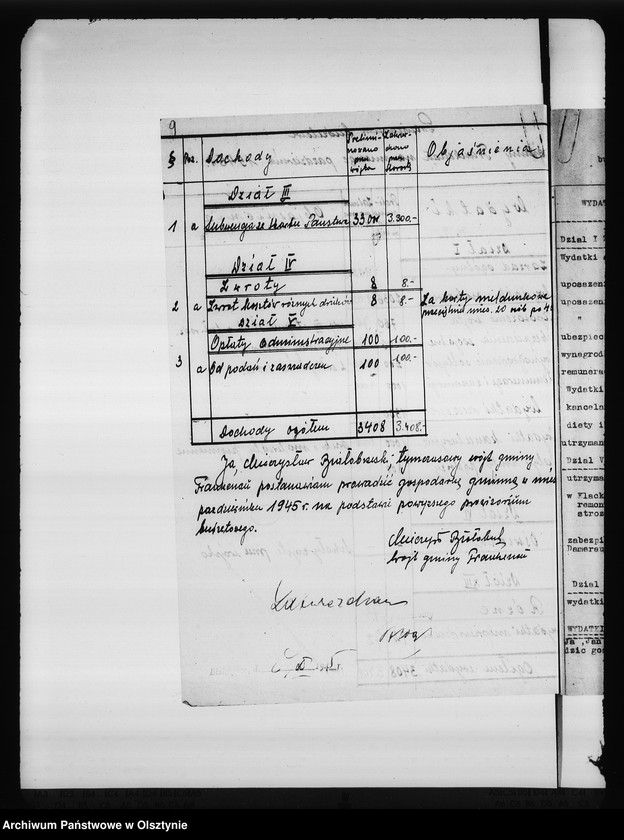 9
§ Poz. Dochody Prelimi-nowano przez wójta Zatwier-dzono przez Starostę Objaśnienia
Dział III
1 a Subwencja ze Skarbu Państwa 3300 3.300.-
Dział IV
Zwroty 8 8.-
2 a Zwrot kosztów różnych druków 8 8.- Za karty meldunkowe
przeciętnie mies. 20 osób po 40
Dział V
Opłaty administracyjne 100 100.-
3 a Od podań i zaświadczeń 100 100.-
Dochody ogółem 3408 3.408.-
Ja, Mieczysław Białobrzeski, tymczasowy wójt gminy
Frankenau postanawiam prowadzić gospodarkę gminną w mies.
październiku 1945 r. na podstawie powyższego prowizorium
budżetowego.
Wójt gminy Frankenau
Zatwierdzam
WYDAT
Dział I
Wydatki
uposażeni
uposażeni
"
ubezpiec
wynagrod
remunera
Wydatki
kancela
diety i
utrzyman
Dział V
utrzyma
w Klack
remon
stroż
zabezpi
Damerau
Dział
wydatki
WYDATKI
Ja, Jan
dzić gos
Archiwum Państwowe w Olsztynie